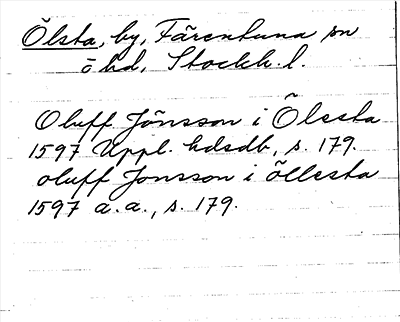 Õlsta, by, Färentuna sn
ö hd, Stockh. l.
Oluff Jönsson i Õlssta
1597 Uppl. hdsdb, s. 179.
oluff Jonsson i õllesta
1597 a. a., s. 179.